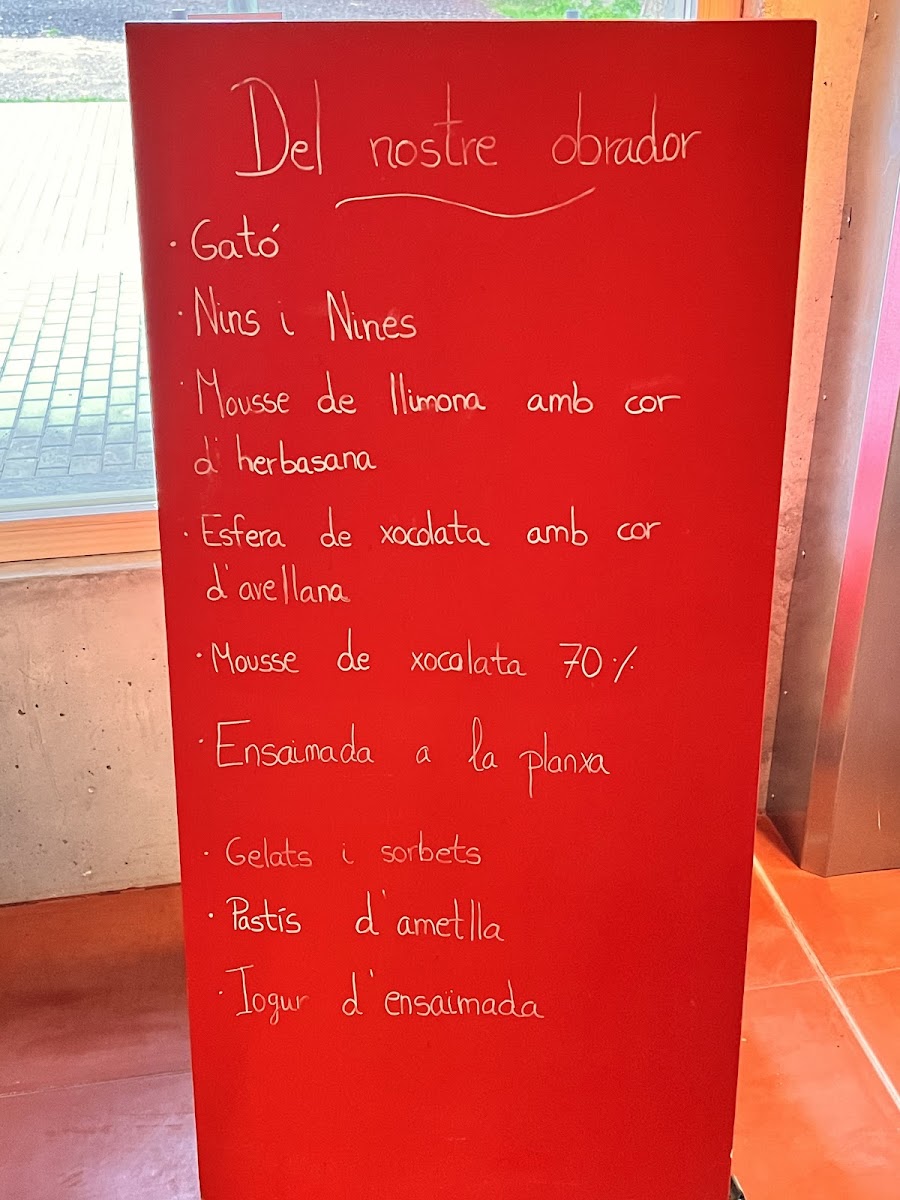 Del nostre obrador
· Gató
· Nins i Nines
· Mousse de llimona amb cor
d'herbasana
· Esfera de xocolata amb cor
d'avellana
· Mousse de xocolata 70%
· Ensaimada a la planxa
· Gelats i sorbets
· Pastís d'ametlla
· Iogur d'ensaimada